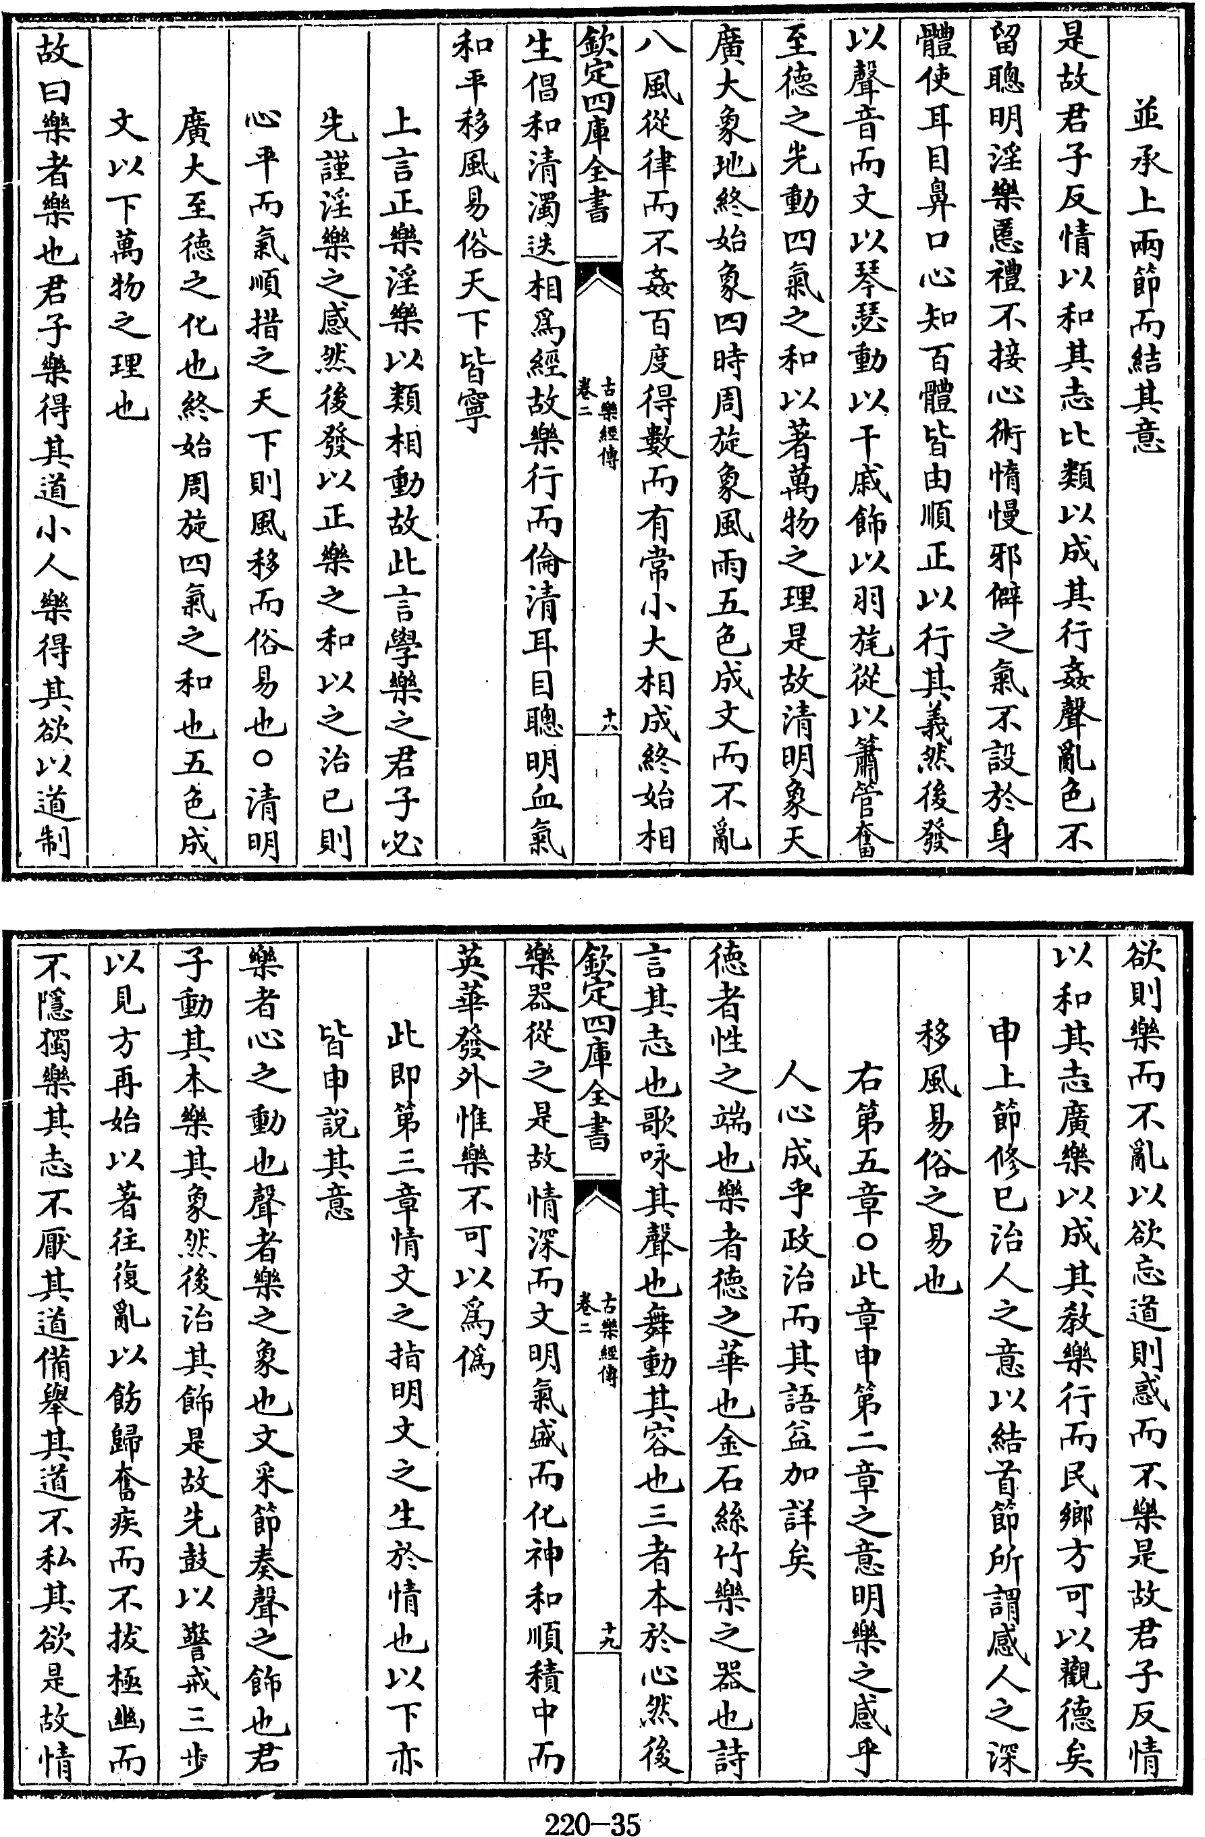 並承上兩節而結其意
是故君子反情以和其志比類以成其行姦聲亂色不
留聰明淫樂慝禮不接心術惰慢邪僻之氣不設於身
體使耳目鼻口心知百體皆由順正以行其義然後發
以聲音而文以琴瑟動以干戚飾以羽旄從以簫管奮
至德之光動四氣之和以著萬物之理是故清明象天
廣大象地終始象四時周旋象風雨五色成文而不亂
八風從律而不姦百度得數而有常小大相成終始相
欽定四庫全書
古樂經傳
卷二
十八
生倡和清濁迭相爲經故樂行而倫清耳目聰明血氣
和平移風易俗天下皆寧
上言正樂淫樂以類相動故此言學樂之君子必
先謹淫樂之感然後發以正樂之和以之治已則
心平而氣順措之天下則風移而俗易也○清明
廣大至德之化也終始周旋四氣之和也五色成
文以下萬物之理也
故曰樂者樂也君子樂得其道小人樂得其欲以道制
欲則樂而不亂以欲忘道則惑而不樂是故君子反情
以和其志廣樂以成其教樂行而民鄉方可以觀德矣
申上節修已治人之意以結首節所謂感人之深
移風易俗之易也
右第五章○此章申第二章之意明樂之感乎
人心成乎政治而其語益加詳矣
德者性之端也樂者德之華也金石絲竹樂之器也詩
言其志也歌咏其聲也舞動其容也三者本於心然後
欽定四庫全書
古樂經傳
卷二
十九
樂器從之是故情深而文明氣盛而化神和順積中而
英華發外惟樂不可以爲僞
此即第三章情文之指明文之生於情也以下亦
皆申說其意
樂者心之動也聲者樂之象也文采節奏聲之飾也君
子動其本樂其象然後治其飾是故先鼓以警戒三步
以見方再始以著往復亂以飭歸奮疾而不拔極幽而
不隱獨樂其志不厭其道備舉其道不私其欲是故情
220-35